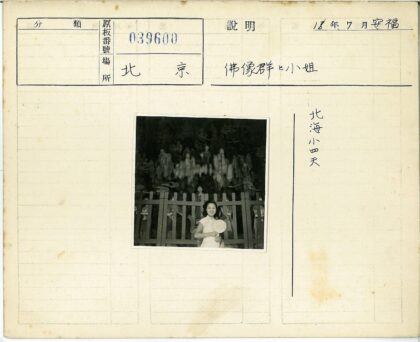 分類
原板番號
039600
場所
北京
說明
佛像群と小姐
18年7月安福
北海小西天